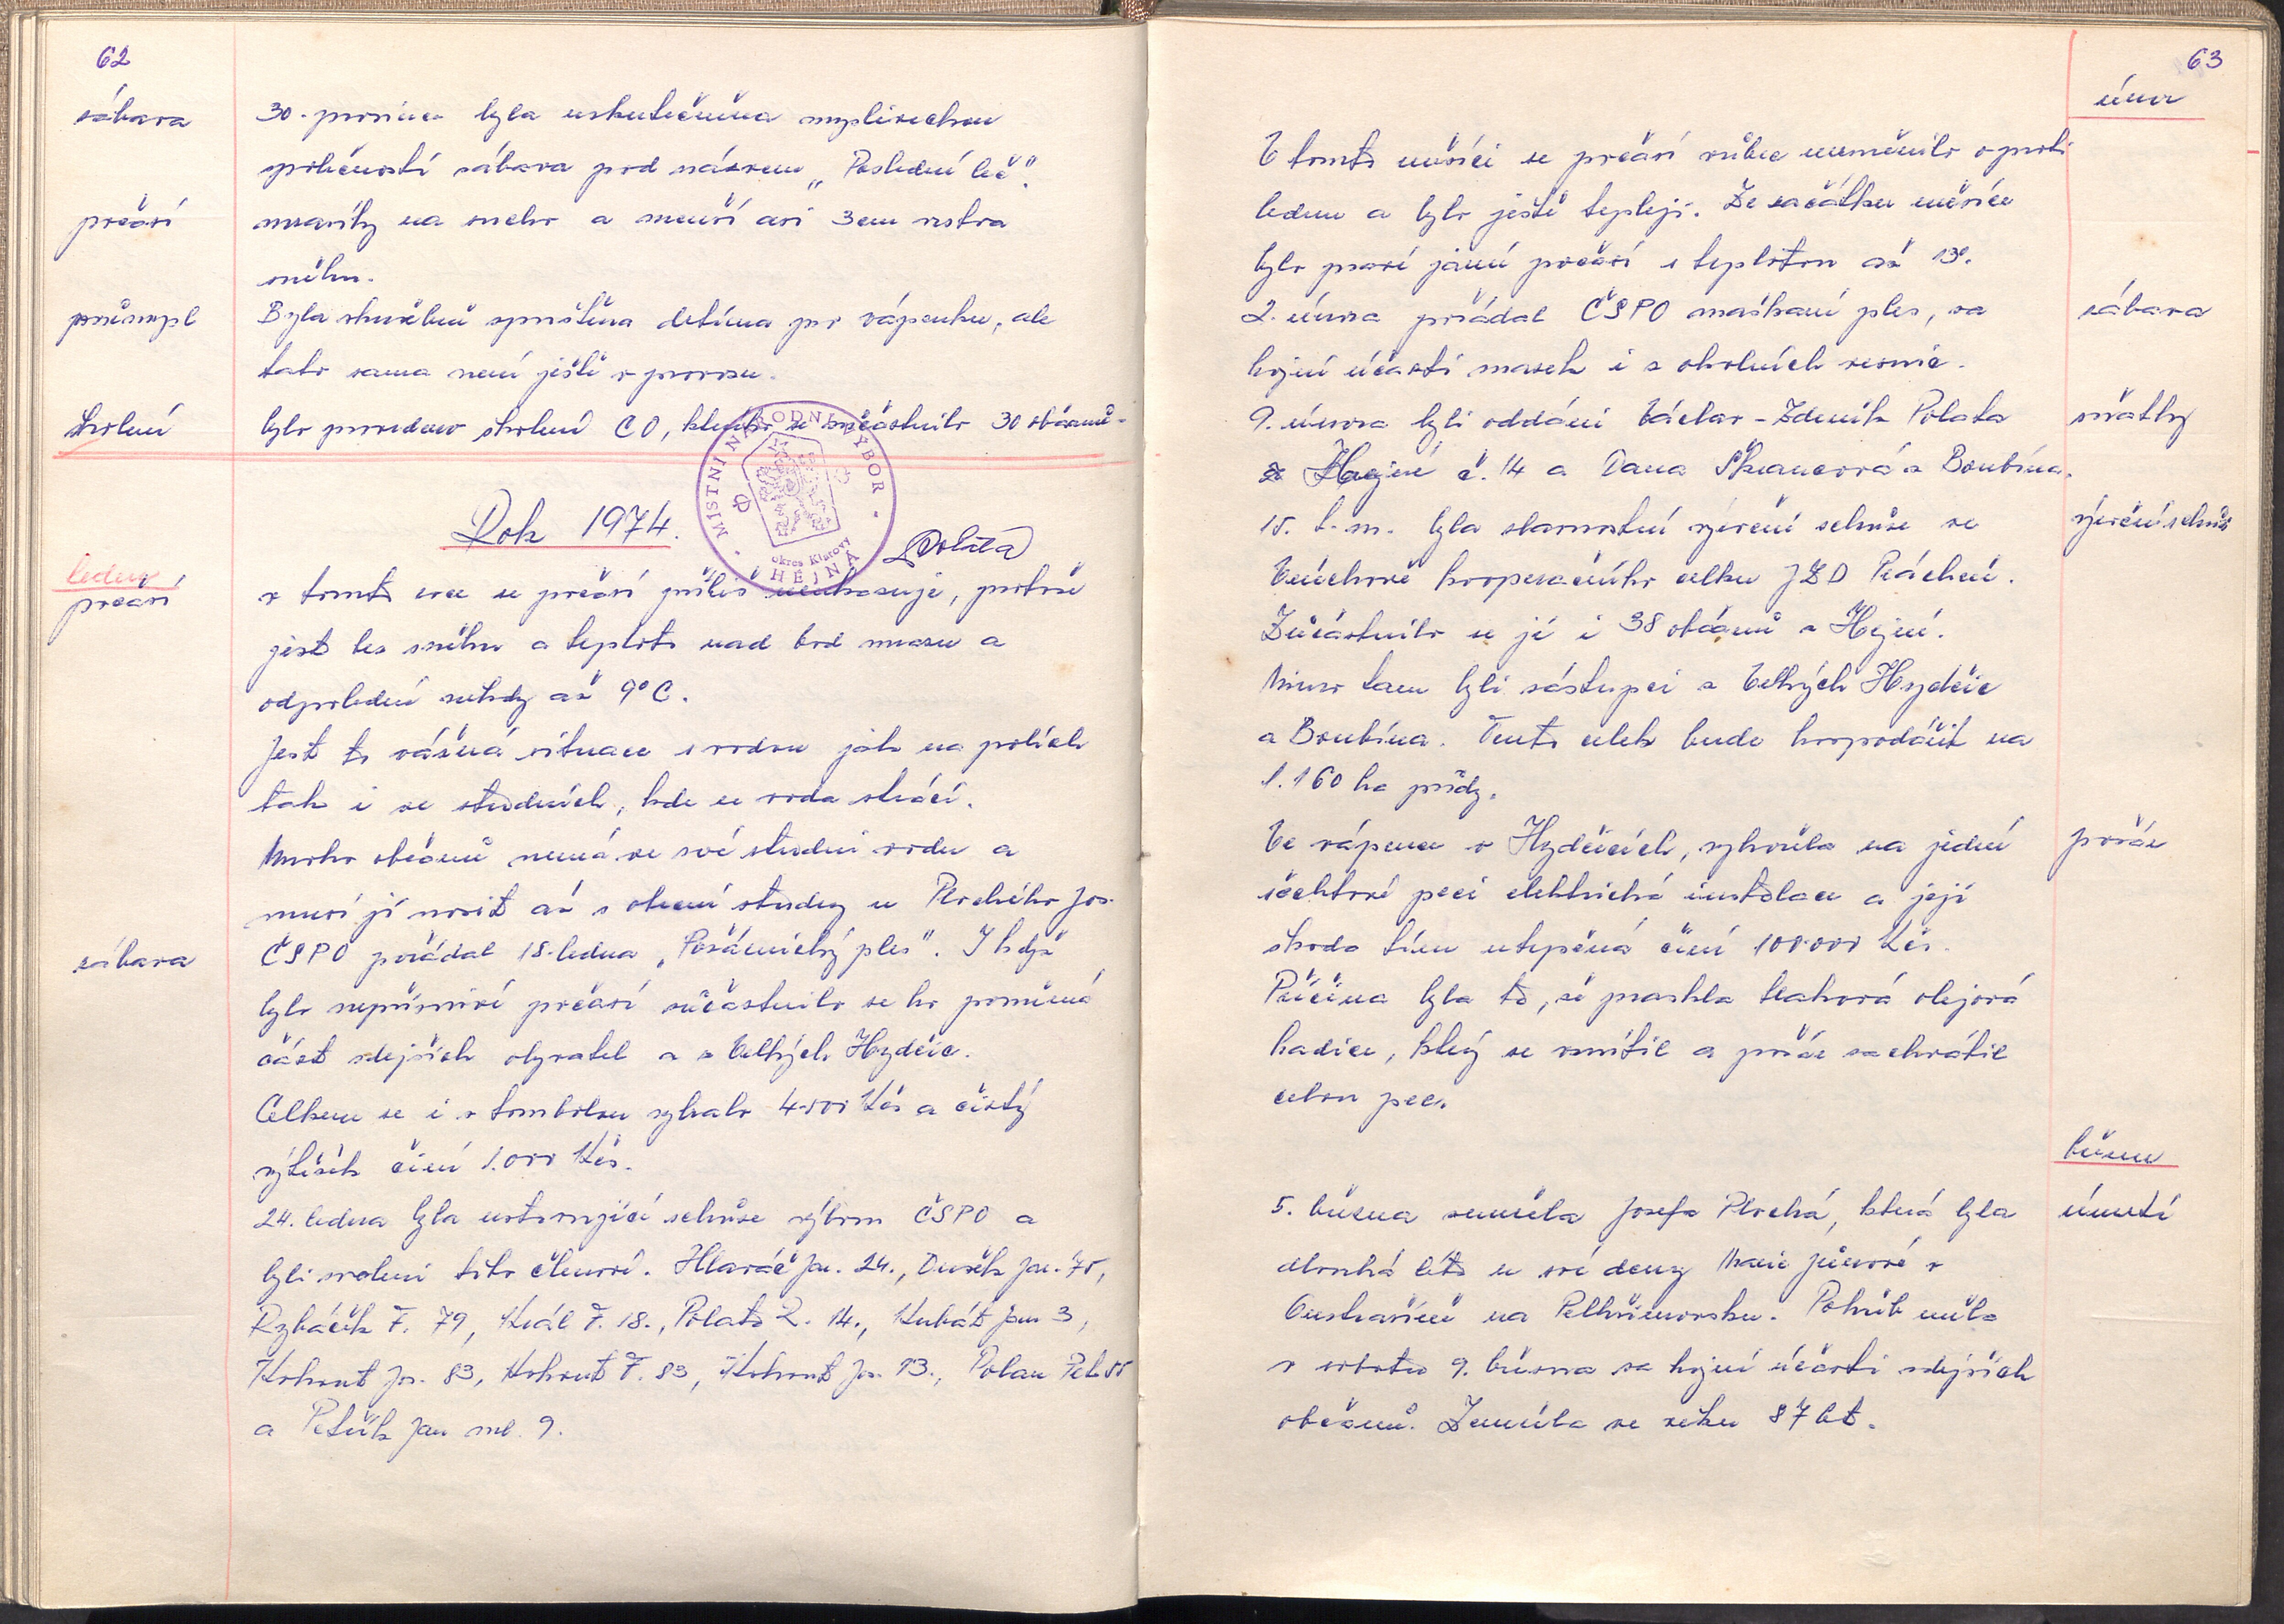 62
zábava
30. prosince byla uskutečněna mysliveckou
společností zábava pod názvem „Poslední leč".
počasí
mrazíky na sucho a menší asi 3cm vrstva
sněhu.
průmysl
Byla zkušebně spuštěna drtírna pro vápenku, ale
tato sama není ještě v provozu.
školení
bylo provedeno školení CO, kterého se zúčastnilo 30 občanů.
MÍSTNÍ NÁRODNÍ VÝBOR
okres Klatovy
HEJNÁ
Rok 1974.
Polata
leden
počasí
v tomto roce se počasí příliš neukazuje, protože
jest bez sněhu a teploto nad bod mrazu a
odpolední někdy až 9°C.
Jest to vážná situace s vodou jak na polích
tak i ve studních, kde se voda ztrácí.
Mnoho občanů nemá ve své studni vodu a
musí jí nosit až z obecní studny u Plochého Jos.
zábava
ČSPO pořádal 18. ledna „Požárnický ples". I když
bylo nepříznivé počasí zúčastnilo se ho poměrná
část zdejších obyvatel a z Velkých Hydčic.
Celkem se i s tombolou vybralo 4.000 Kčs a čistý
výtěžek činí 1.000 Kčs.
24. ledna byla ustavující schůze výboru ČSPO a
byli zvoleni tito členové. Hlaváč Jar. 24., Dušek Jar. 75,
Rybáček F. 79, Král F. 18., Polata Z. 14., Kubát Jan 3,
Kohout Jos. 83, Kohout F. 83, Kohout Jos. 13., Polan Petr 55
a Petřík Jan ml. 9.
63
únor
V tomto měsíci se počasí vůbec nezměnilo oproti
lednu a bylo ještě tepleji. Ze začátku měsíce
bylo pravé jarní počasí s teplotou až 13°.
zábava
2. února pořádal ČSPO maškarní ples, za
hojné účasti masek i z okolních vesnic.
sňatky
9. února byli oddáni Václav - Zdeněk Polata
z Hejné č. 14 a Dana Škrancová z Boubína.
výroční schůze
15. t. m. byla slavnostní výroční schůze ve
Vrnchově kooperačního celku JZD Prácheň.
Zúčastnilo se jí i 38 občanů z Hejné.
Mimo tam byli zástupci z Velkých Hydčic
a Boubína. Tento celek bude hospodářit na
1.160 ha půdy.
požár
Ve vápence v Hydčicích, vyhořela na jedné
šachtové peci elektrická instalace a její
škoda tím utrpěná činí 100.000 Kčs.
Příčina byla to, že praskla tlaková olejová
hadice, který se vznítil a požár zachvátil
celou pec.
březen
úmrtí
5. března zemřela Josefa Plochá, která byla
dlouhá léta u své dcery Marie Jůnové v
na Pelhřimovsku. Pohřeb měla
v sobotu 9. března za hojné účasti zdejších
občanů. Zemřela ve věku 87 let.